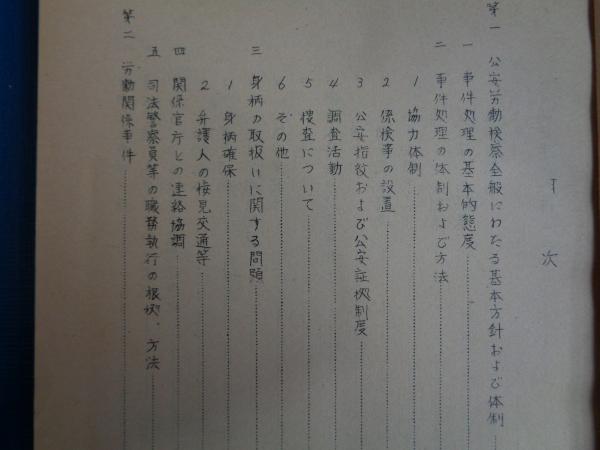 目次
第一 公安労働検察全般にわたる基本方針および体制
一 事件処理の基本的態度
二 事件処理の体制および方法
1 協力体制
2 係検事の設置
3 公安指紋および公安証拠制度
4 調査活動
5 捜査について
6 その他
三 身柄の取扱いに関する問題
1 身柄確保
2 弁護人の接見交通等
四 関係官庁との連絡協調
五 司法警察員等の職務執行の根拠、方法
第二 労働関係事件